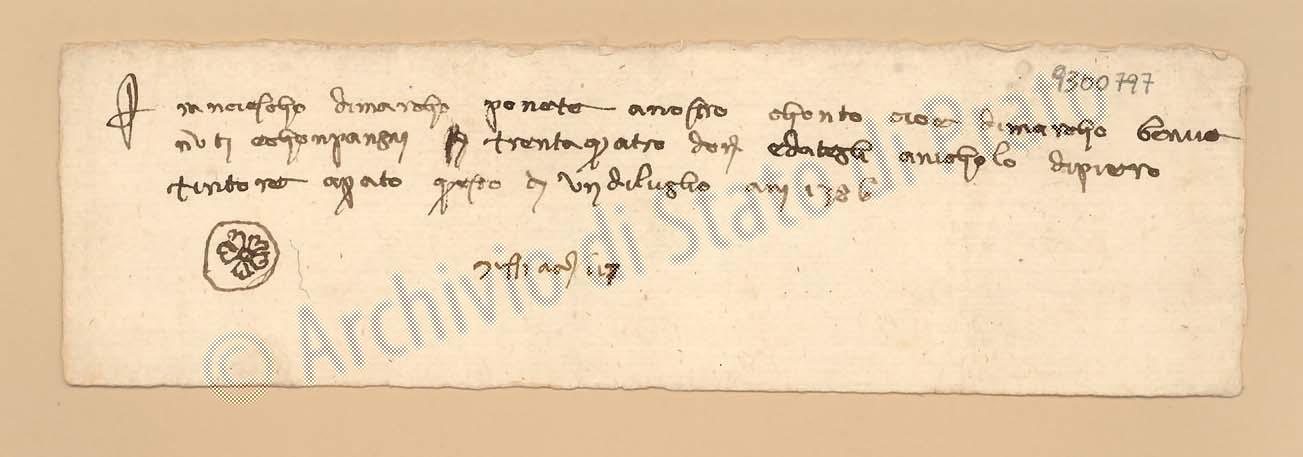 9300797
Franciescho di marcho ponete a nostro chonto cioe di marcho benve
nuti e chonpangni trentaquatro e dategli a nicholo di piero
tintore a prato questo dì di luglio 1386
© Archivio di Stato di Prato